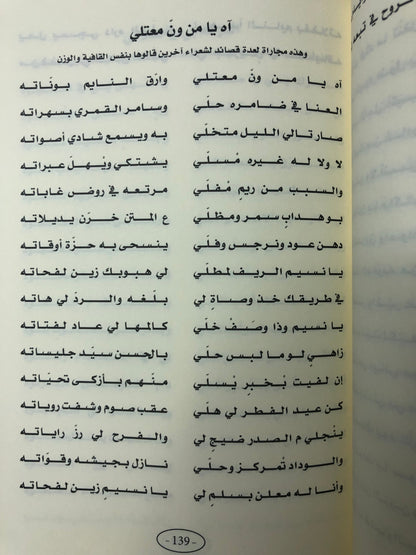 آه يا من ونّ معتلي
وهذه مجاراة لعدة قصائد لشعراء آخرين قالوها بنفس القافية والوزن
آه يا من ونّ معتلي وازق النايم بونّاته
العنا في ضامره حلّي وسامر القمري بسهراته
صار تالي الليل متخلّي به ويسمع شادي أصواته
لا ولا له غيره مْسلّي يشتكي ويْهلّ عبراته
والسبب من ريمٍ مْفلّي مرتعه في روض غاباته
بو هدابٍ سمر ومظلّي ع المتن خزن يديلاته
دهن عود ونرجس وفلّي ينسحى به حزّة أوقاته
يا نسيم الريف لمطلّي لي هبوبك زين لفحاته
في طريقك خذ وصاةٍ لي بلّغه والردّ لي هاته
يا نسيم وذا وصَفْ خلّي كالمها لي عاد لفتاته
زاهيٍ لو ما لبس حلّي بالحسن سيّد جليساته
إن لفيت بْخبرٍ يْسلّي منهم بأزكى تحيّاته
كن عيد الفطر لي هلّي عقب صوم وشفت روياته
ينجلي م الصدر ضيجٍ لي والفرح لي رزّ راياته
والوداد تْمركز وحلّي نازل بجيشه وقوّاته
وأنا له معلن بسلمٍ لي يا نسيمٍ زين لفحاته
- 139 -